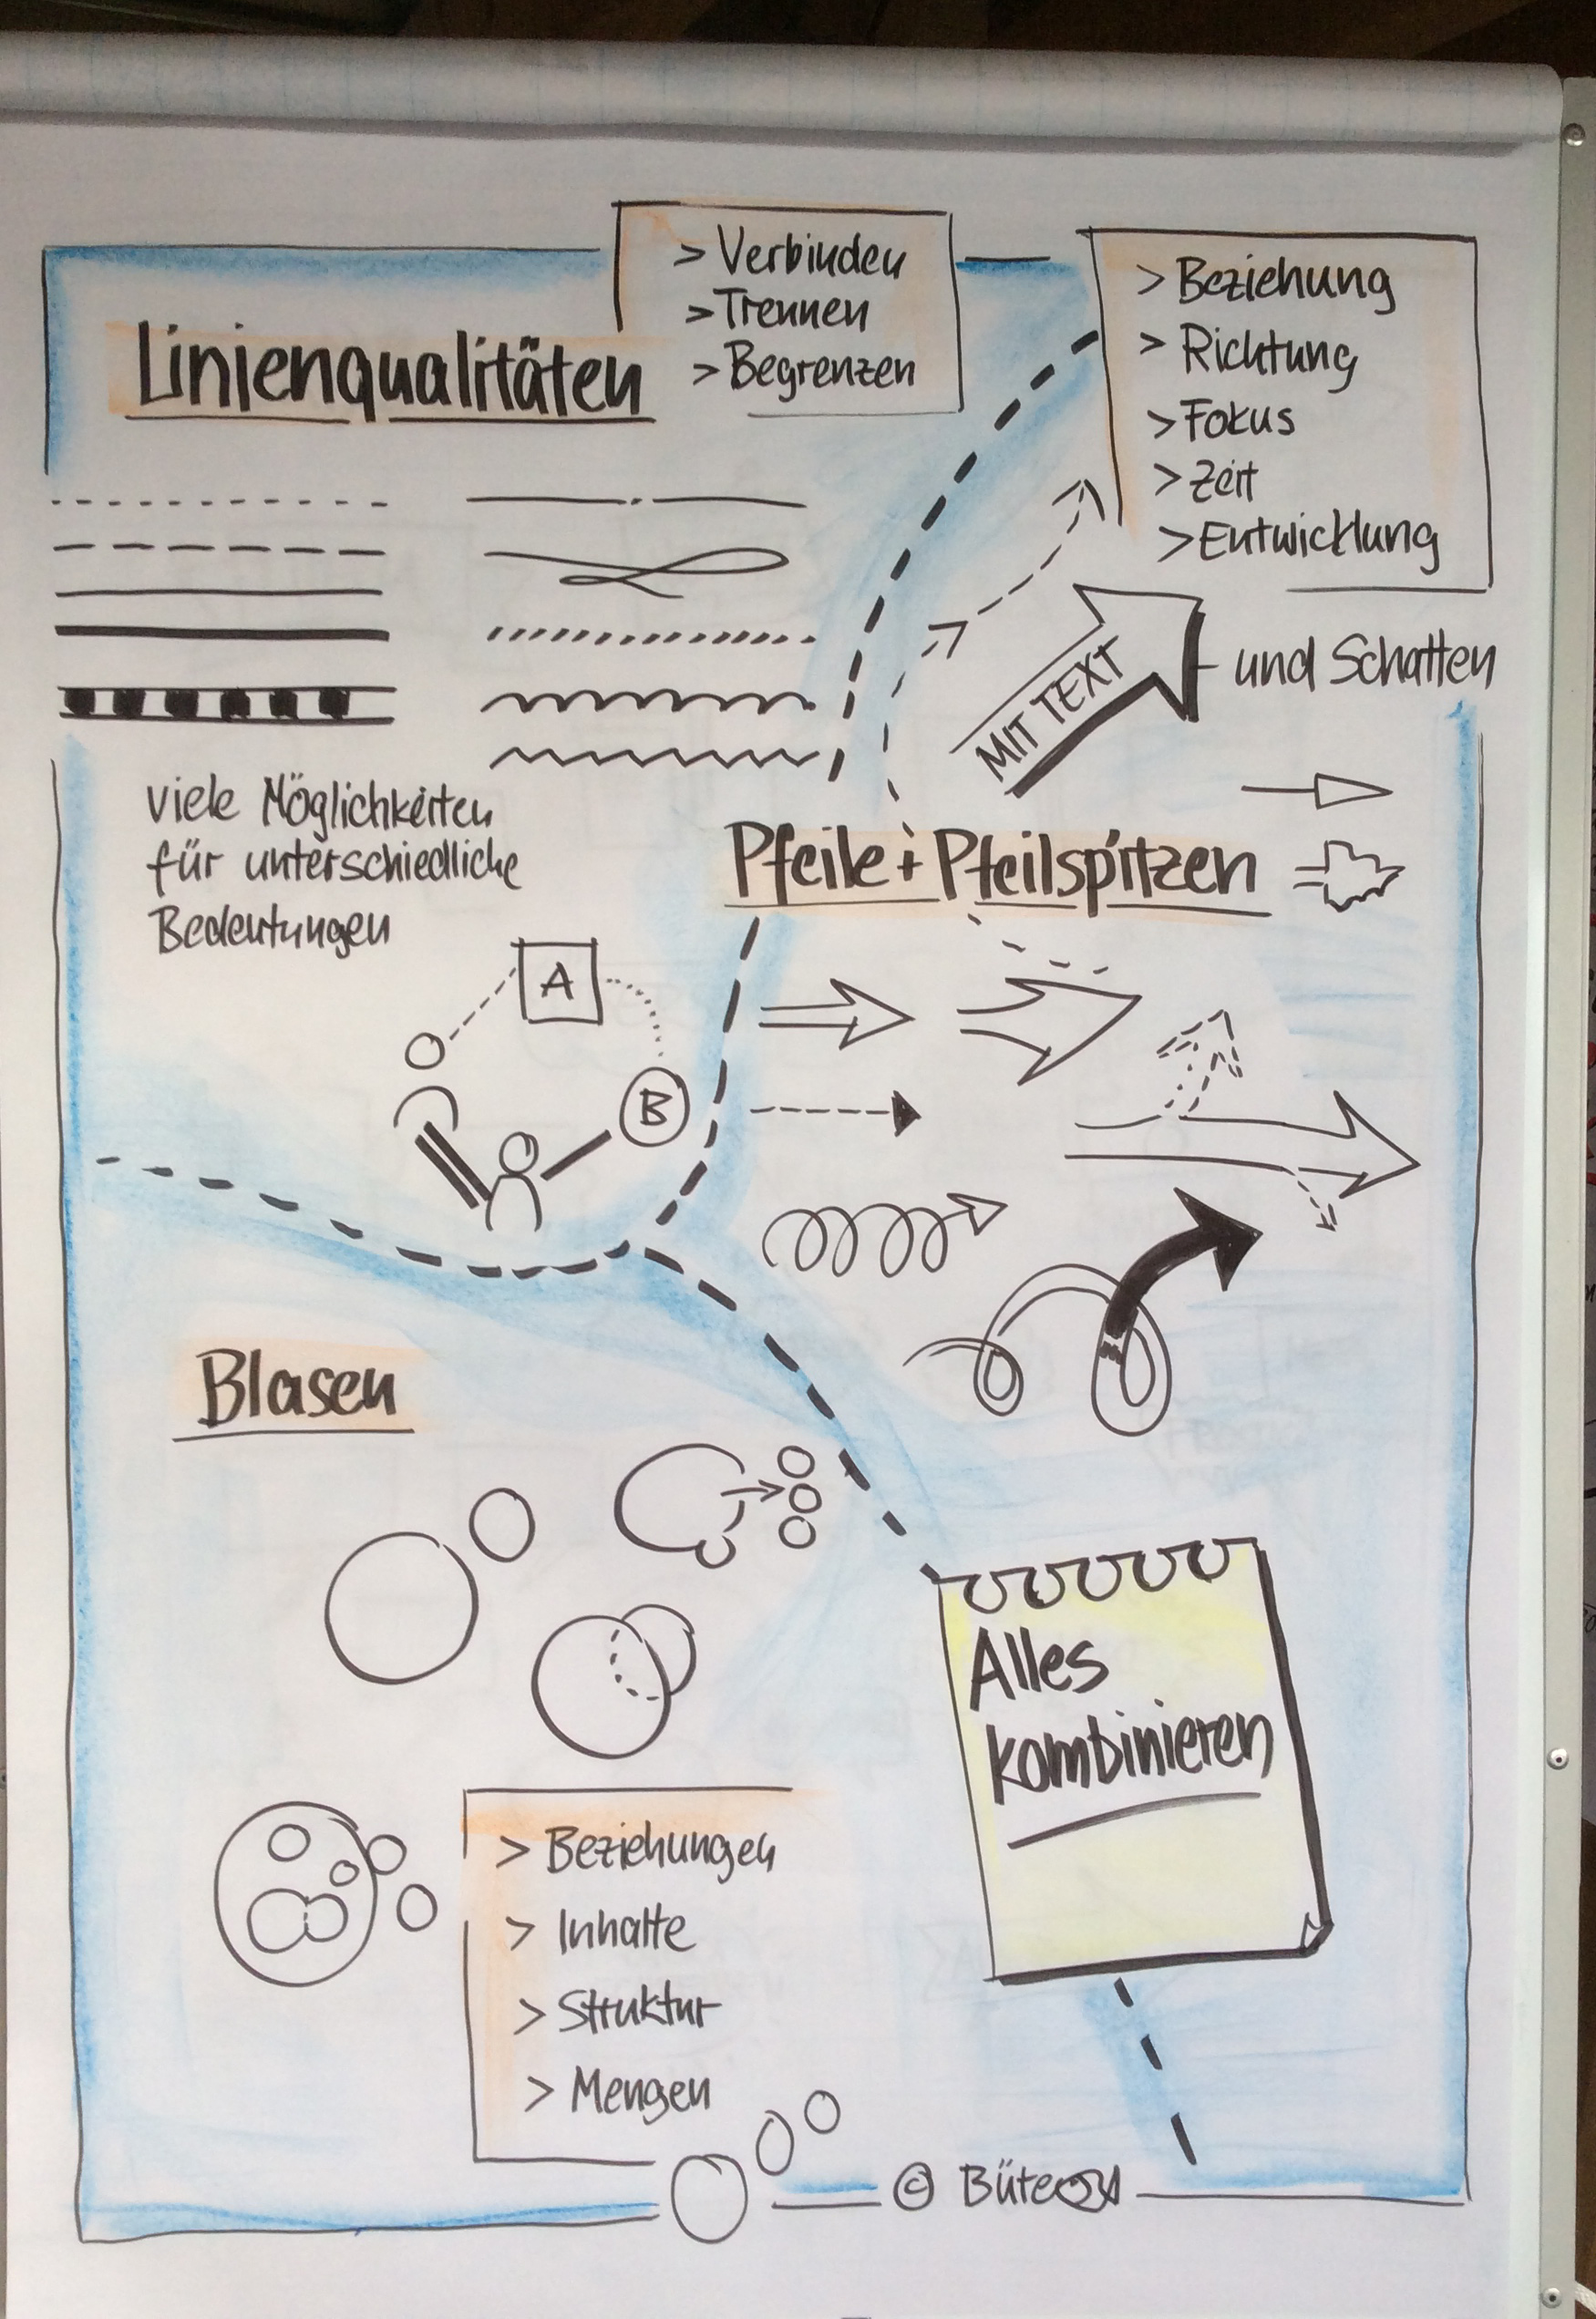 Linienqualitäten
> Verbinden
> Trennen
> Begrenzen
> Beziehung
> Richtung
> Fokus
> Zeit
> Entwicklung
MIT TEXT
und Schatten
viele Möglichkeiten
für unterschiedliche
Bedeutungen
A
B
Pfeile + Pfeilspitzen
Blasen
> Beziehungen
> Inhalte
> Struktur
> Mengen
Alles
kombinieren
©